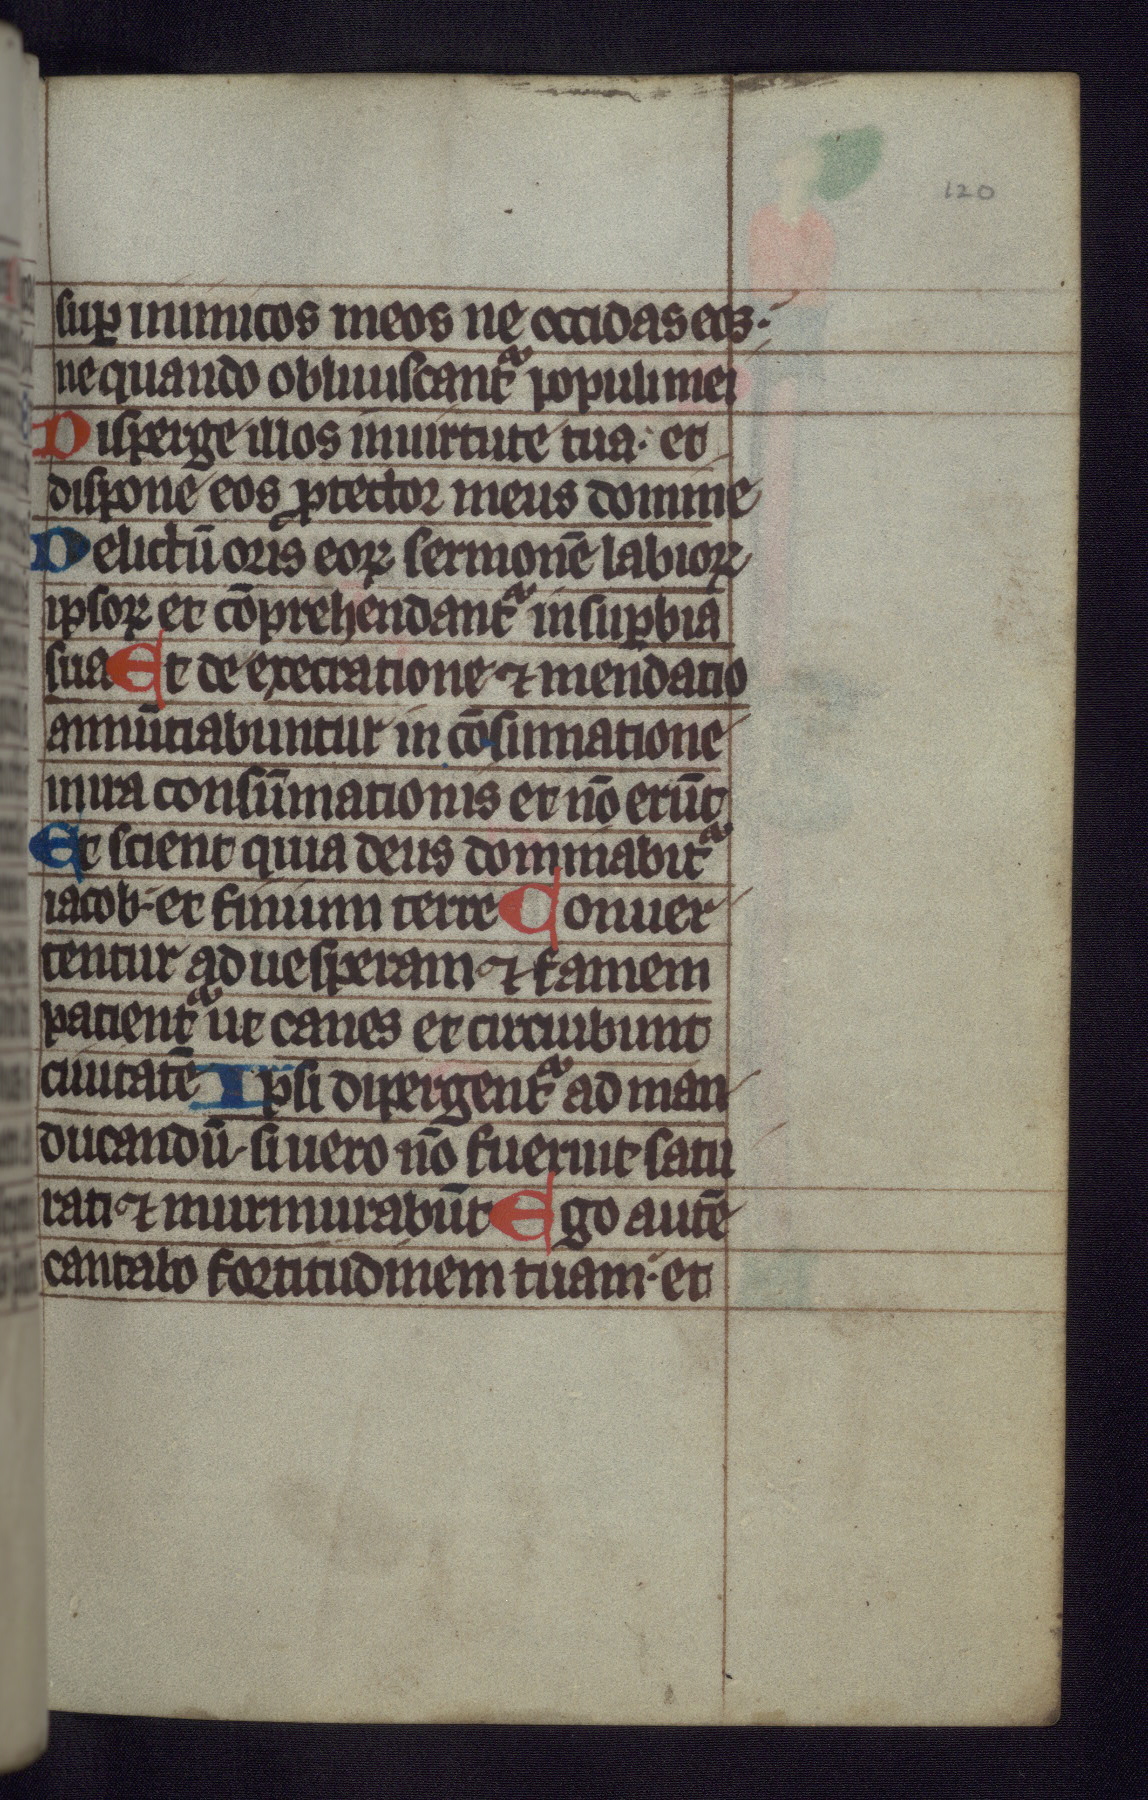 120
sup inimicos meos ne occidas eos·
ne quando obliuiscantͬ populi mei
Disperge illos in uirtute tua· et
dispone eos ꝓtector meus domine
Delictū oris eoꝝ sermonē labioꝝ
ipsoꝝ et cōprehendantͬ in suꝑbia
sua Et de execratione ⁊ mendatio
annūtiabuntur in cōsumatione
in ira consūmationis et nō erūt
Et scient quia deus dominabitͬ
iacob· et finium terre Conuer
tentur ad uesperam ⁊ famem
patientͬ ut canes et circuibunt
ciuitatē Ipsi dipergentͬ ad man
ducandū· si uero nō fuerint satu
rati ⁊ murmurabūt Ego autē
cantabo fortitudinem tuam· et